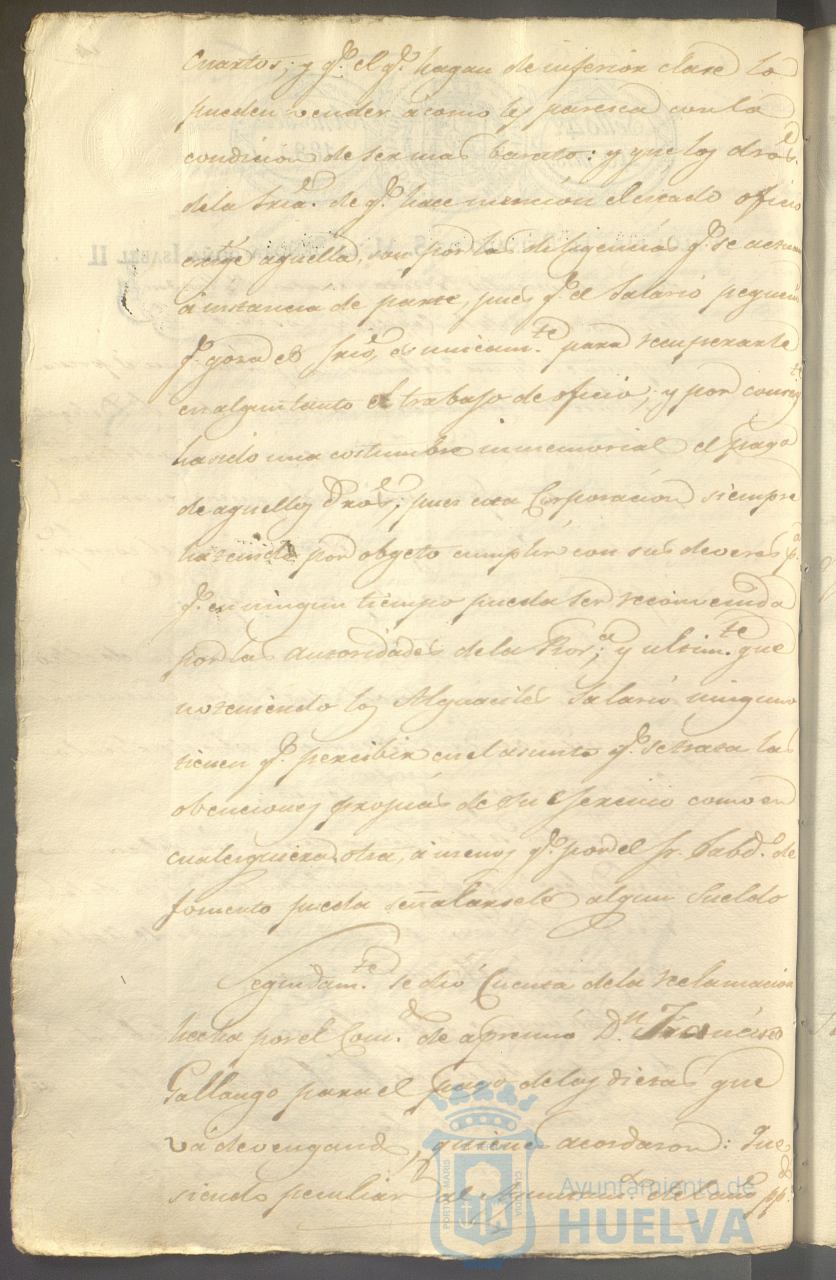 cuartos; y q.e el q.e hagan de inferior clase lo
pueden vender á como les paresca con la
condicion de ser mas barato: y que los dros.
de la Sria. de q.e hace mencion el citado oficio
exige aquella, son por las diligencias q.e se actuan
á instancia de parte, pues q.e el salario pequeño
q.e goza el Srio, es unicam.te para recuperarle
en algun tanto el trabajo de oficio; y por consig.te
ha sido una costumbre inmemorial el pago
de aquellos dros; pues esta Corporacion siempre
ha tenido por obgeto cumplir con sus deveres p.a
q.e en ningun tiempo pueda ser reconvenida
por las autoridades de la Prov.a; y ultim.te que
no teniendo los Alguaciles salario ninguno
tienen q.e percibir en el asunto q.e se trata las
obenciones propias de su egercicio como en
cualesquiera otra, á menos q.e por el Sr. Sabd.o de
fomento pueda señalarsele algun sueldo
Seguidam.te se dió cuenta de la reclamacion
hecha por el Com.do de apremio D.n Francisco
Gallango para el pago de las dietas que
vá devengando, quienes acordaron: Que
siendo peculiar al Ayuntam.to de el año pp.do
Ayuntamiento de
HUELVA
PORTUS MARIS
CUSTODIA
ISABEL II